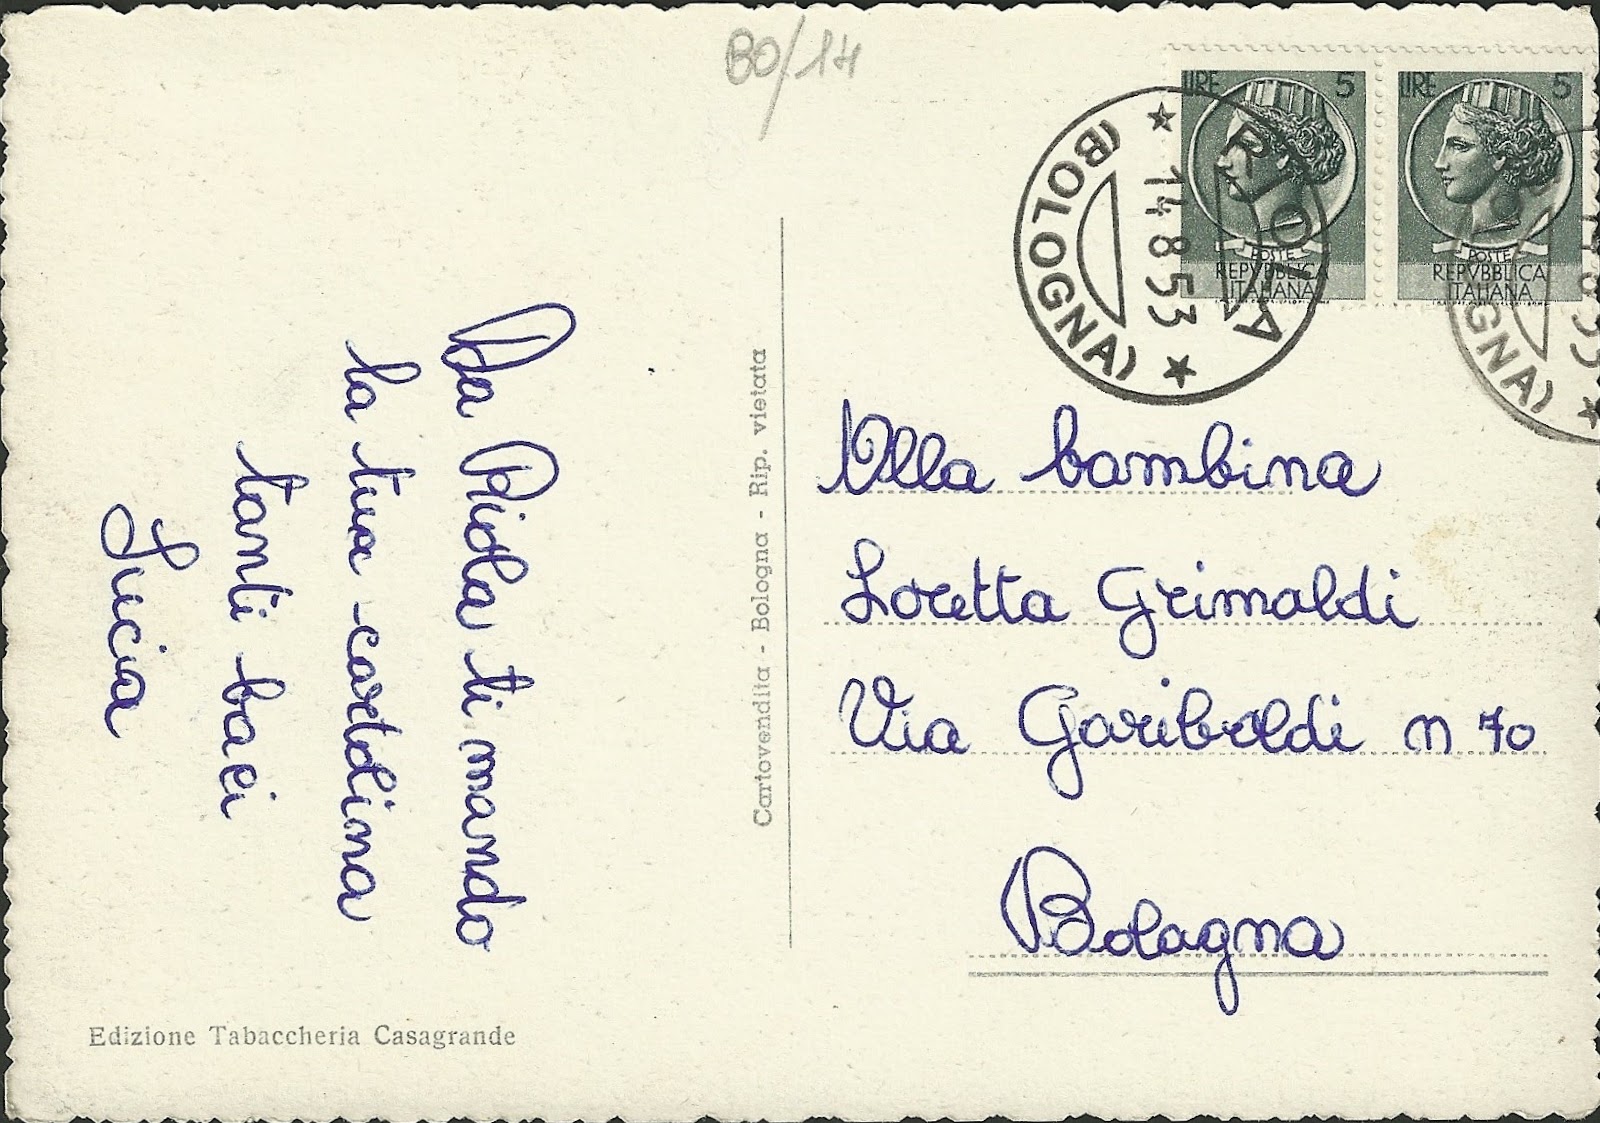 BO/14
LIRE 5
POSTE
REPVBBLICA
ITALIANA
LIRE 5
POSTE
REPVBBLICA
ITALIANA
RIOLA
14 8 53
(BOLOGNA)
Da Riola ti mando
la tua cartolina
tanti baci
Lucia
Cartovendita - Bologna - Rip. vietata
Alla bambina
Loretta Grimaldi
Via Garibaldi n 70
Bologna
Edizione Tabaccheria Casagrande